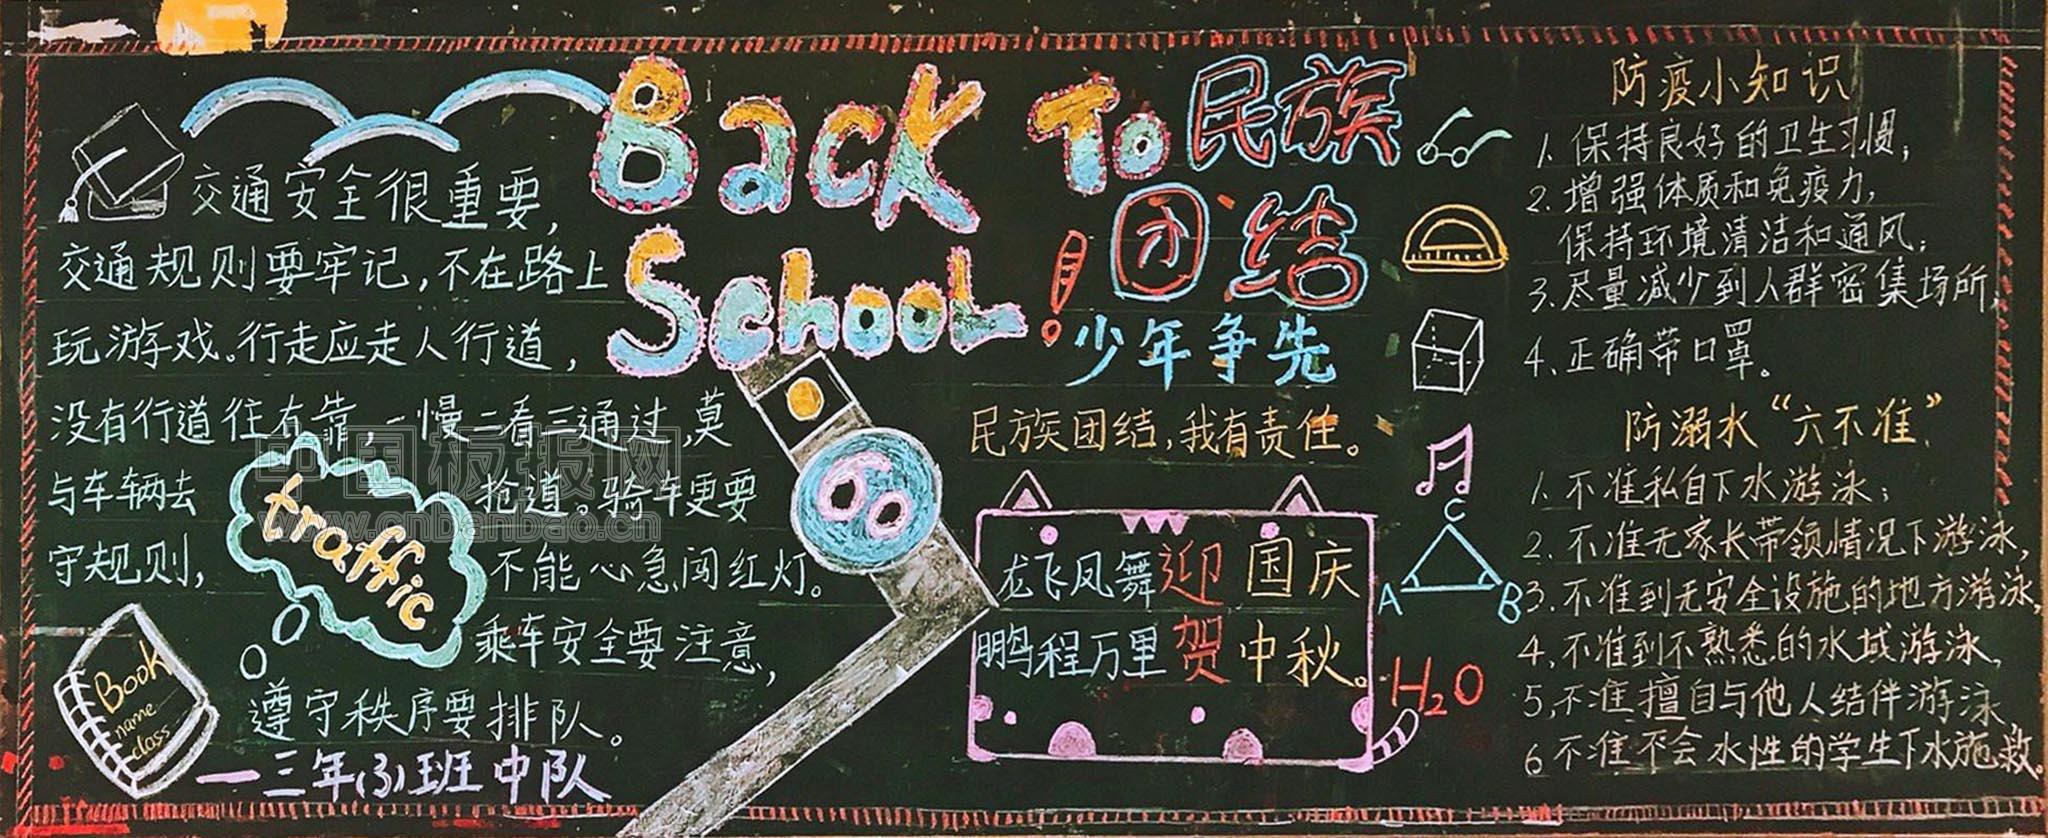 Back To
School
民族
团结
!
少年争先
民族团结,我有责任。
交通安全很重要,
交通规则要牢记,不在路上
玩游戏。行走应走人行道,
没有行道往右靠,一慢二看三通过,莫
与车辆去抢道。骑车更要
守规则,不能心急闯红灯。
乘车安全要注意,
遵守秩序要排队。
—三年(3)班中队
traffic
Book
name
class
龙飞凤舞迎国庆
鹏程万里贺中秋。
C
A B
H2O
防疫小知识
1.保持良好的卫生习惯;
2.增强体质和免疫力,
保持环境清洁和通风;
3.尽量减少到人群密集场所,
4.正确带口罩。
防溺水“六不准”
1.不准私自下水游泳;
2.不准无家长带领情况下游泳,
3.不准到无安全设施的地方游泳,
4.不准到不熟悉的水域游泳,
5,不准擅自与他人结伴游泳,
6不准不会水性的学生下水施救。
中国板报网
www.cnbanbao.cn